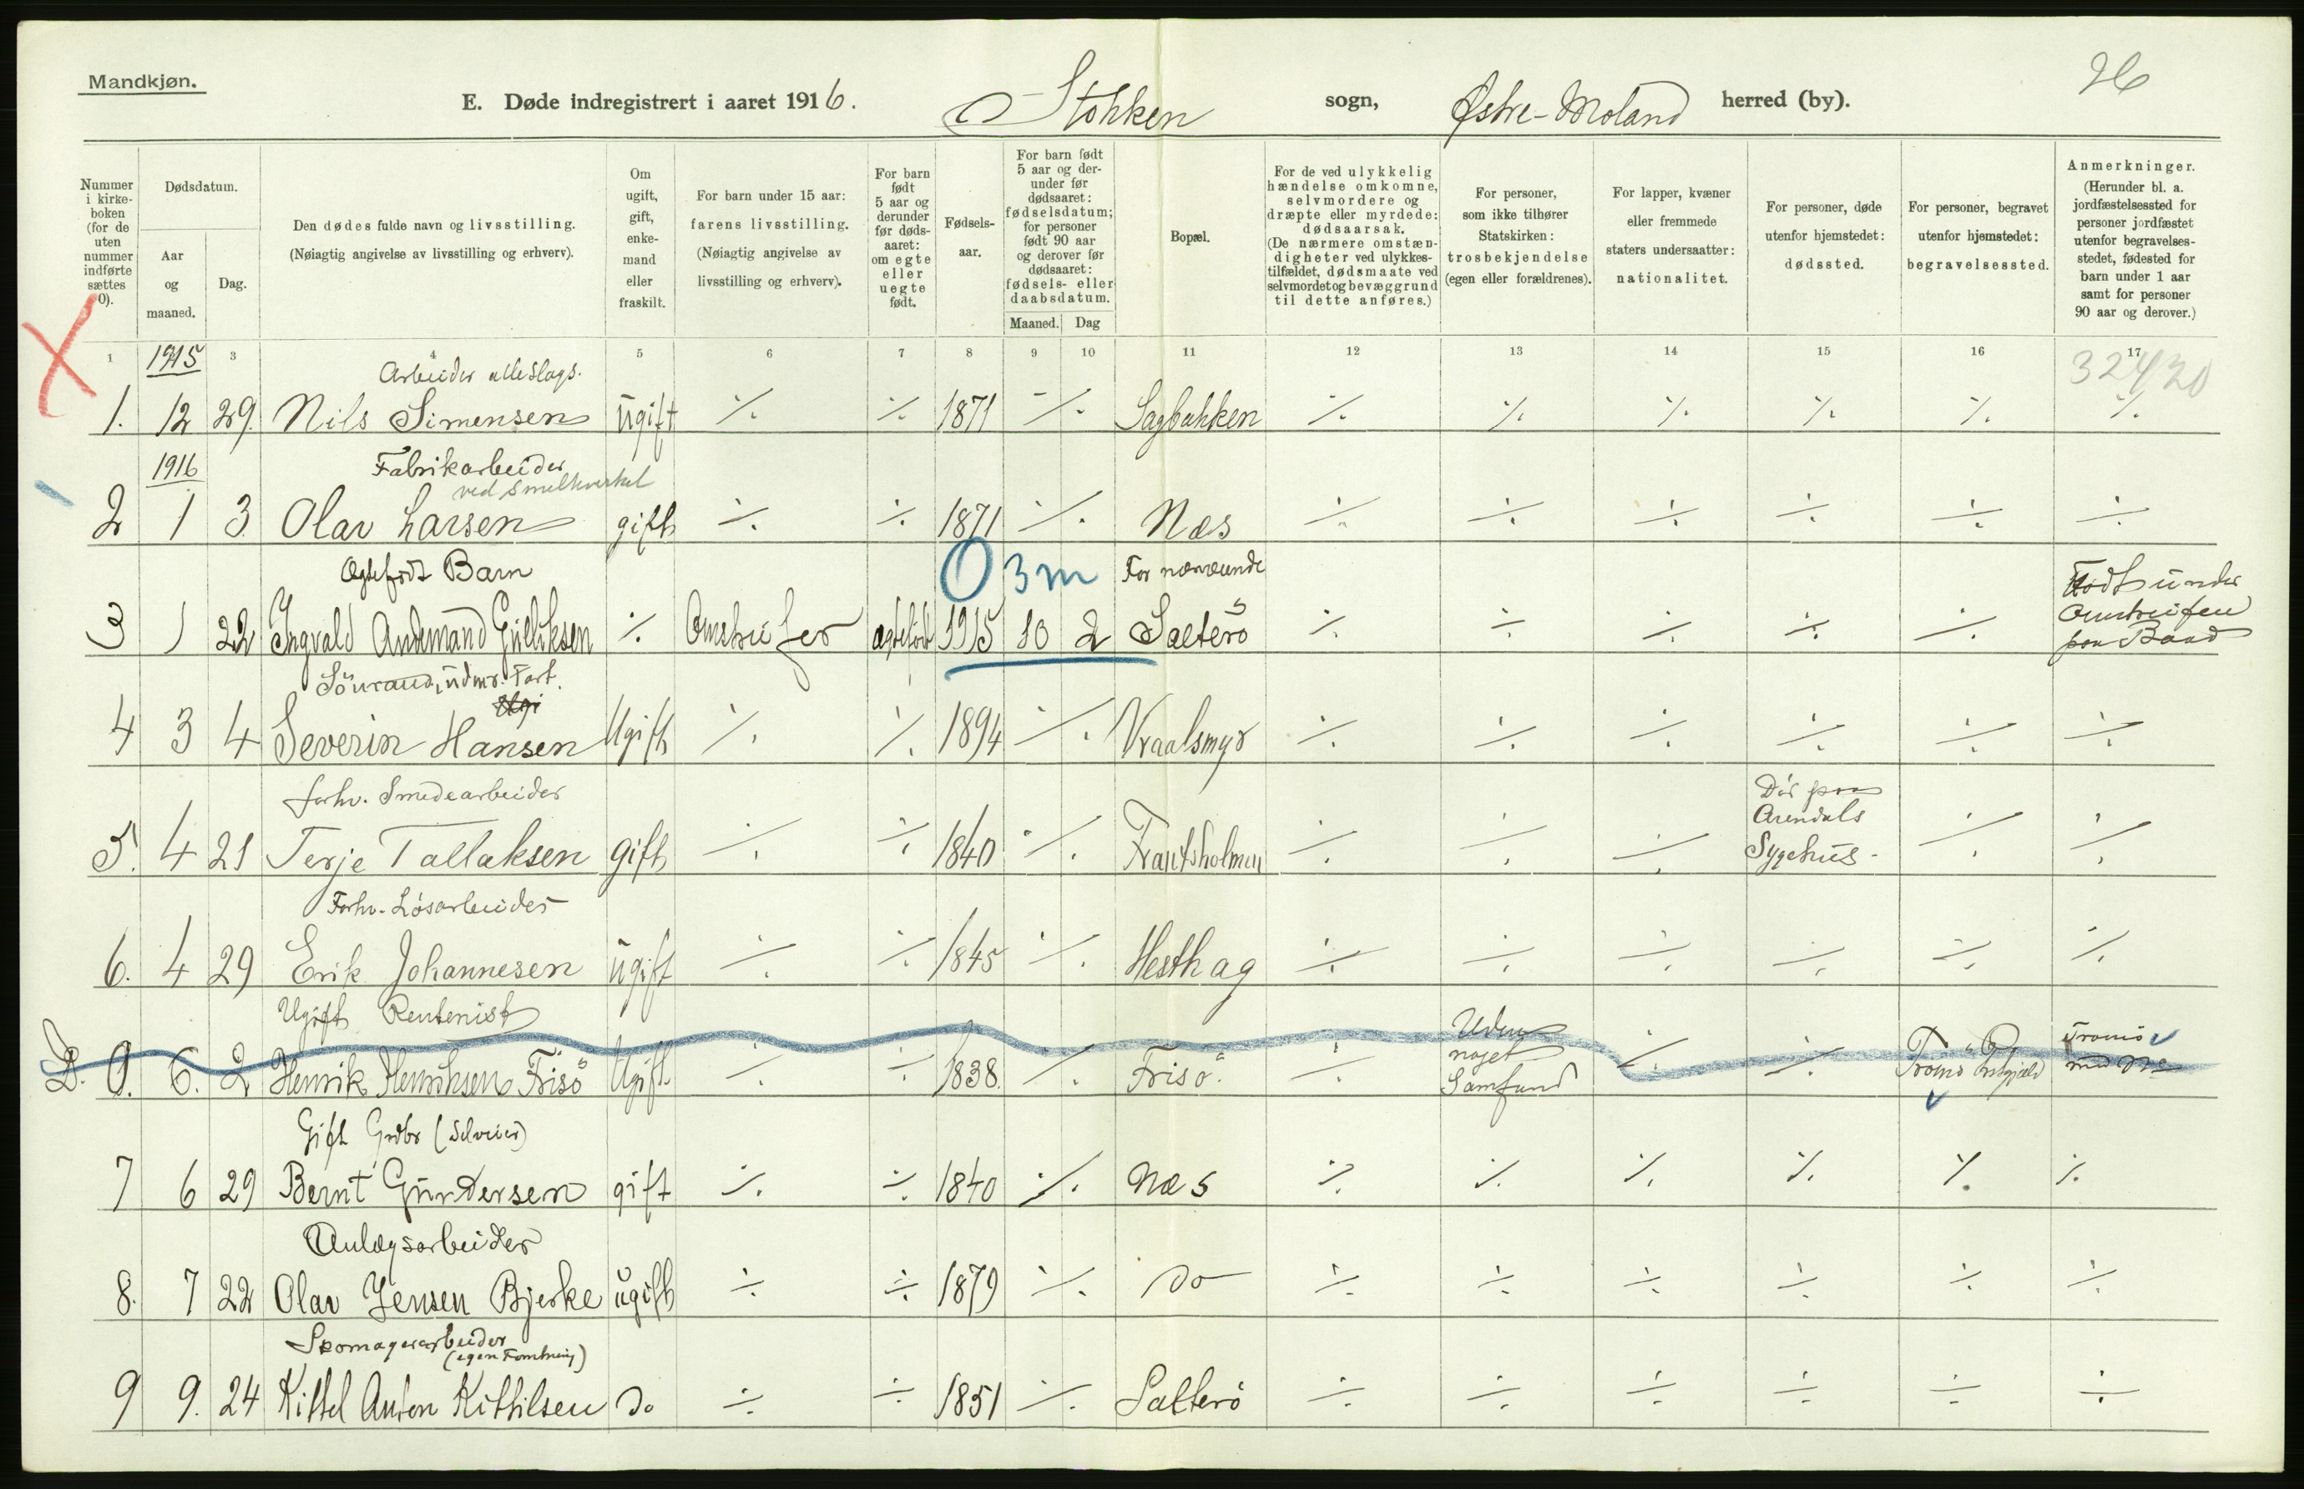 Mandkjøn.
26
E. Døde indregistrert i aaret 1916. Stokken sogn, Østre-Moland herred (by).
Nummer i kirke-boken (for de uten nummer indførte sættes 0).
Dødsdatum.
Aar og maaned.
Dag.
Den dødes fulde navn og livsstilling.
(Nøiagtig angivelse av livsstilling og erhverv).
Om ugift, gift, enke-mand eller fraskilt.
For barn under 15 aar: farens livsstilling.
(Nøiagtig angivelse av livsstilling og erhverv).
For barn født 5 aar og derunder før døds-aaret: om egte eller uegte født.
Fødsels-aar.
For barn født 5 aar og der-under før dødsaaret: fødselsdatum; for personer født 90 aar og derover før dødsaaret: fødsels- eller daabsdatum.
Maaned. Dag
Bopæl.
For de ved ulykkelig hændelse omkomne, selvmordere og dræpte eller myrdede: dødsaarsak.
(De nærmere omstæn-digheter ved ulykkes-tilfældet, dødsmaate ved selvmordet og bevæggrund til dette anføres.)
For personer, som ikke tilhører Statskirken: trosbekjendelse (egen eller forældrenes).
For lapper, kvæner eller fremmede staters undersaatter: nationalitet.
For personer, døde utenfor hjemstedet: dødssted.
For personer, begravet utenfor hjemstedet: begravelsessted.
Anmerkninger.
(Herunder bl. a. jordfæstelsessted for personer jordfæstet utenfor begravelses-stedet, fødested for barn under 1 aar samt for personer 90 aar og derover.)
1 3 4 5 6 7 8 9 10 11 12 13 14 15 16 17
1915 Arbeider alleslags.
1. 12 29. Nils Simensen ugift ٪ ٪ 1871 ٪ Sagbakken ٪ ٪ ٪ ٪ ٪ ٪
1916 Fabrikarbeider
ved Smelteverket
2 1 3 Olav Larsen gift ÷ ÷ 1871 ÷ Næs ÷ ÷ ÷ ÷ ÷ ÷
Ægtefødt Barn 0 3 m For nærværende Født under
3 1 22 Ingvald Andemand Gulliksen ÷ ægtefødt 1915 10 2 Salterö ÷ ÷ ÷ ÷ ÷
paa Baad
Fart.
4 3 4 Severin Hansen Ugift ÷ ÷ 1894 ÷ Vraalsmyr ÷ ÷ ÷ ÷ ÷ ÷
forhv. Smedearbeider Dör paa
Arendals
5. 4 21 Terje Tallaksen gift ÷ ÷ 1840 ÷ Frantsholmen ÷ ÷ ÷ Sygehus- ÷ ÷
Forhv. Lösarbeider
6. 4 29 Erik Johannesen ugift ÷ ÷ 1845 ÷ Hesthag ÷ ÷ ÷ ÷ ÷ ÷
Ugift Rentenist Uden Tromö
noget
D. 0. 6. 2 Henrik Henriksen Frisö Ugift. ÷ ÷ 1838. ÷ Frisö. ÷ Samfund ÷ ÷ Tromö
Gift Grdbr (Selveier)
7 6 29 Bernt Gundersen gift ÷ ÷ 1840 ÷ Næs ÷ ÷ ÷ ÷ ÷ ÷
Anlægsarbeider
8. 7 22 Olav Jensen Bjerke ugift ÷ ÷ 1879 ÷ Do ÷ ÷ ÷ ÷ ÷ ÷
Skomagerarbeider
(egen Forretning)
9 9. 24 Kittel Anton Kittilsen Do ÷ ÷ 1851 ÷ Salterö ÷ ÷ ÷ ÷ ÷ ÷